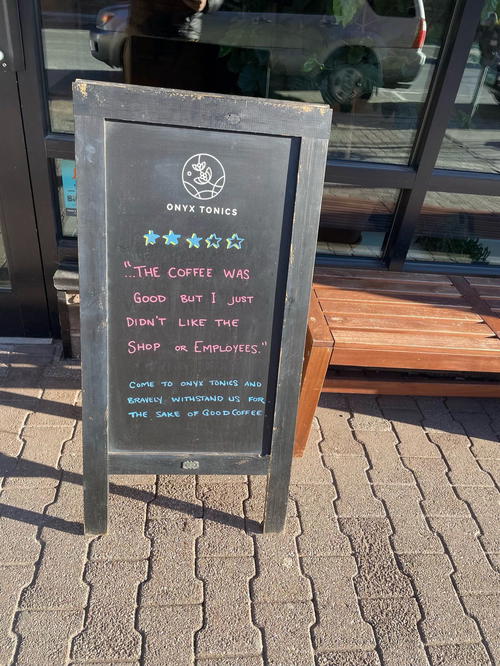 ONYX TONICS
"...THE COFFEE WAS
GOOD BUT I JUST
DIDN'T LIKE THE
SHOP OR EMPLOYEES."
COME TO ONYX TONICS AND
BRAVELY WITHSTAND US FOR
THE SAKE OF GOOD COFFEE